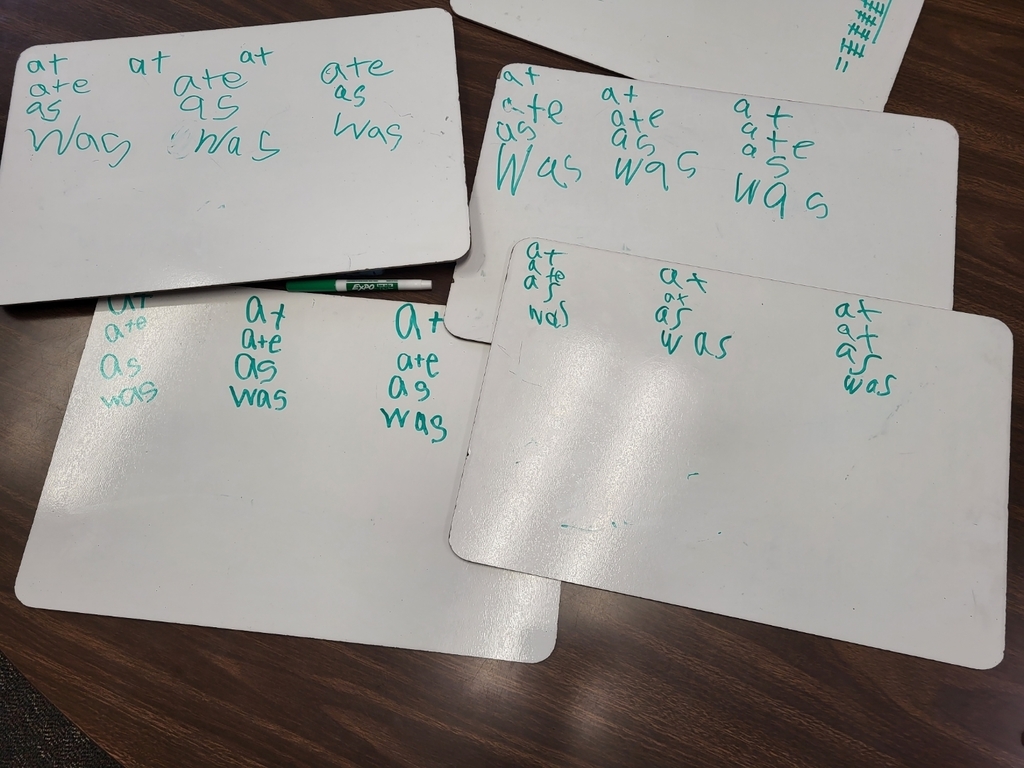 at at at
ate ate ate
as as as
Was Was Was
at at at
ate ate ate
as as as
Was was was
EXPO
at at at
ate ate ate
as as as
was was was
at at at
ate at at
as as as
was was was